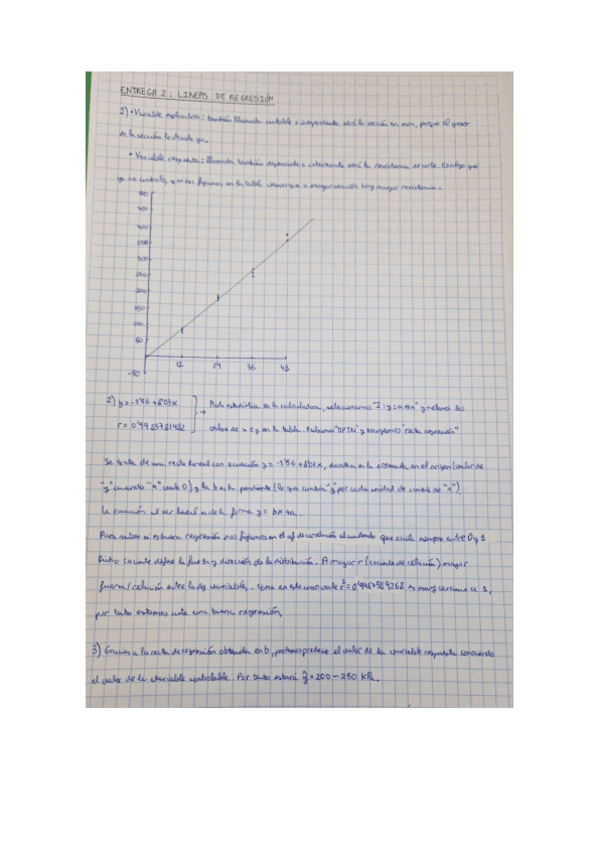 ENTREGA 2: LINEAS DE REGRESIÓN
1) • Variable explicativa: también llamada controlable o independiente será la sección en mm, porque el grosor
de la sección la decido yo.
• Variable respuesta: llamada también dependiente o interesante será la resistencia de corte. Es algo que
yo no controlo, que nos fijamos en la tabla vemos que a mayor sección hay mayor resistencia.
500
450
400
350
300
250
200
150
100
50
-50
12
24
36
48
2) y = -3'56 + 8'03x
r = 0'99
Modo estadística en la calculadora, seleccionamos "2: y=a+bx" y metemos los
valores de x e y en la tabla. Pulsamos "OPTN" y escogemos "recta regresión"
Se trata de una recta lineal con ecuación y = -3'56 + 8'03x, donde a es la ordenada en el origen (valor de
"y" cuando "x" vale 0) y la b es la pendiente (lo que cambia "y" por cada unidad de cambio de "x").
La ecuación al ser lineal es de la forma y = bx + a.
Para saber si es buena regresión nos fijamos en el de correlación al cuadrado que oscila siempre entre 0 y 1
Dicho cociente define la fuerza y dirección de la distribución. A mayor r (cociente de relación) mayor
fuerza/relación entre las dos variables. Como en este caso vale r² = muy cercano a 1,
por tanto estamos ante una buena regresión.
3) Gracias a la recta de regresión obtenida en b, podemos predecir el valor de la variable respuesta conociendo
el valor de la variable controlable. Por tanto estará ŷ = 200 - 250 kPa.